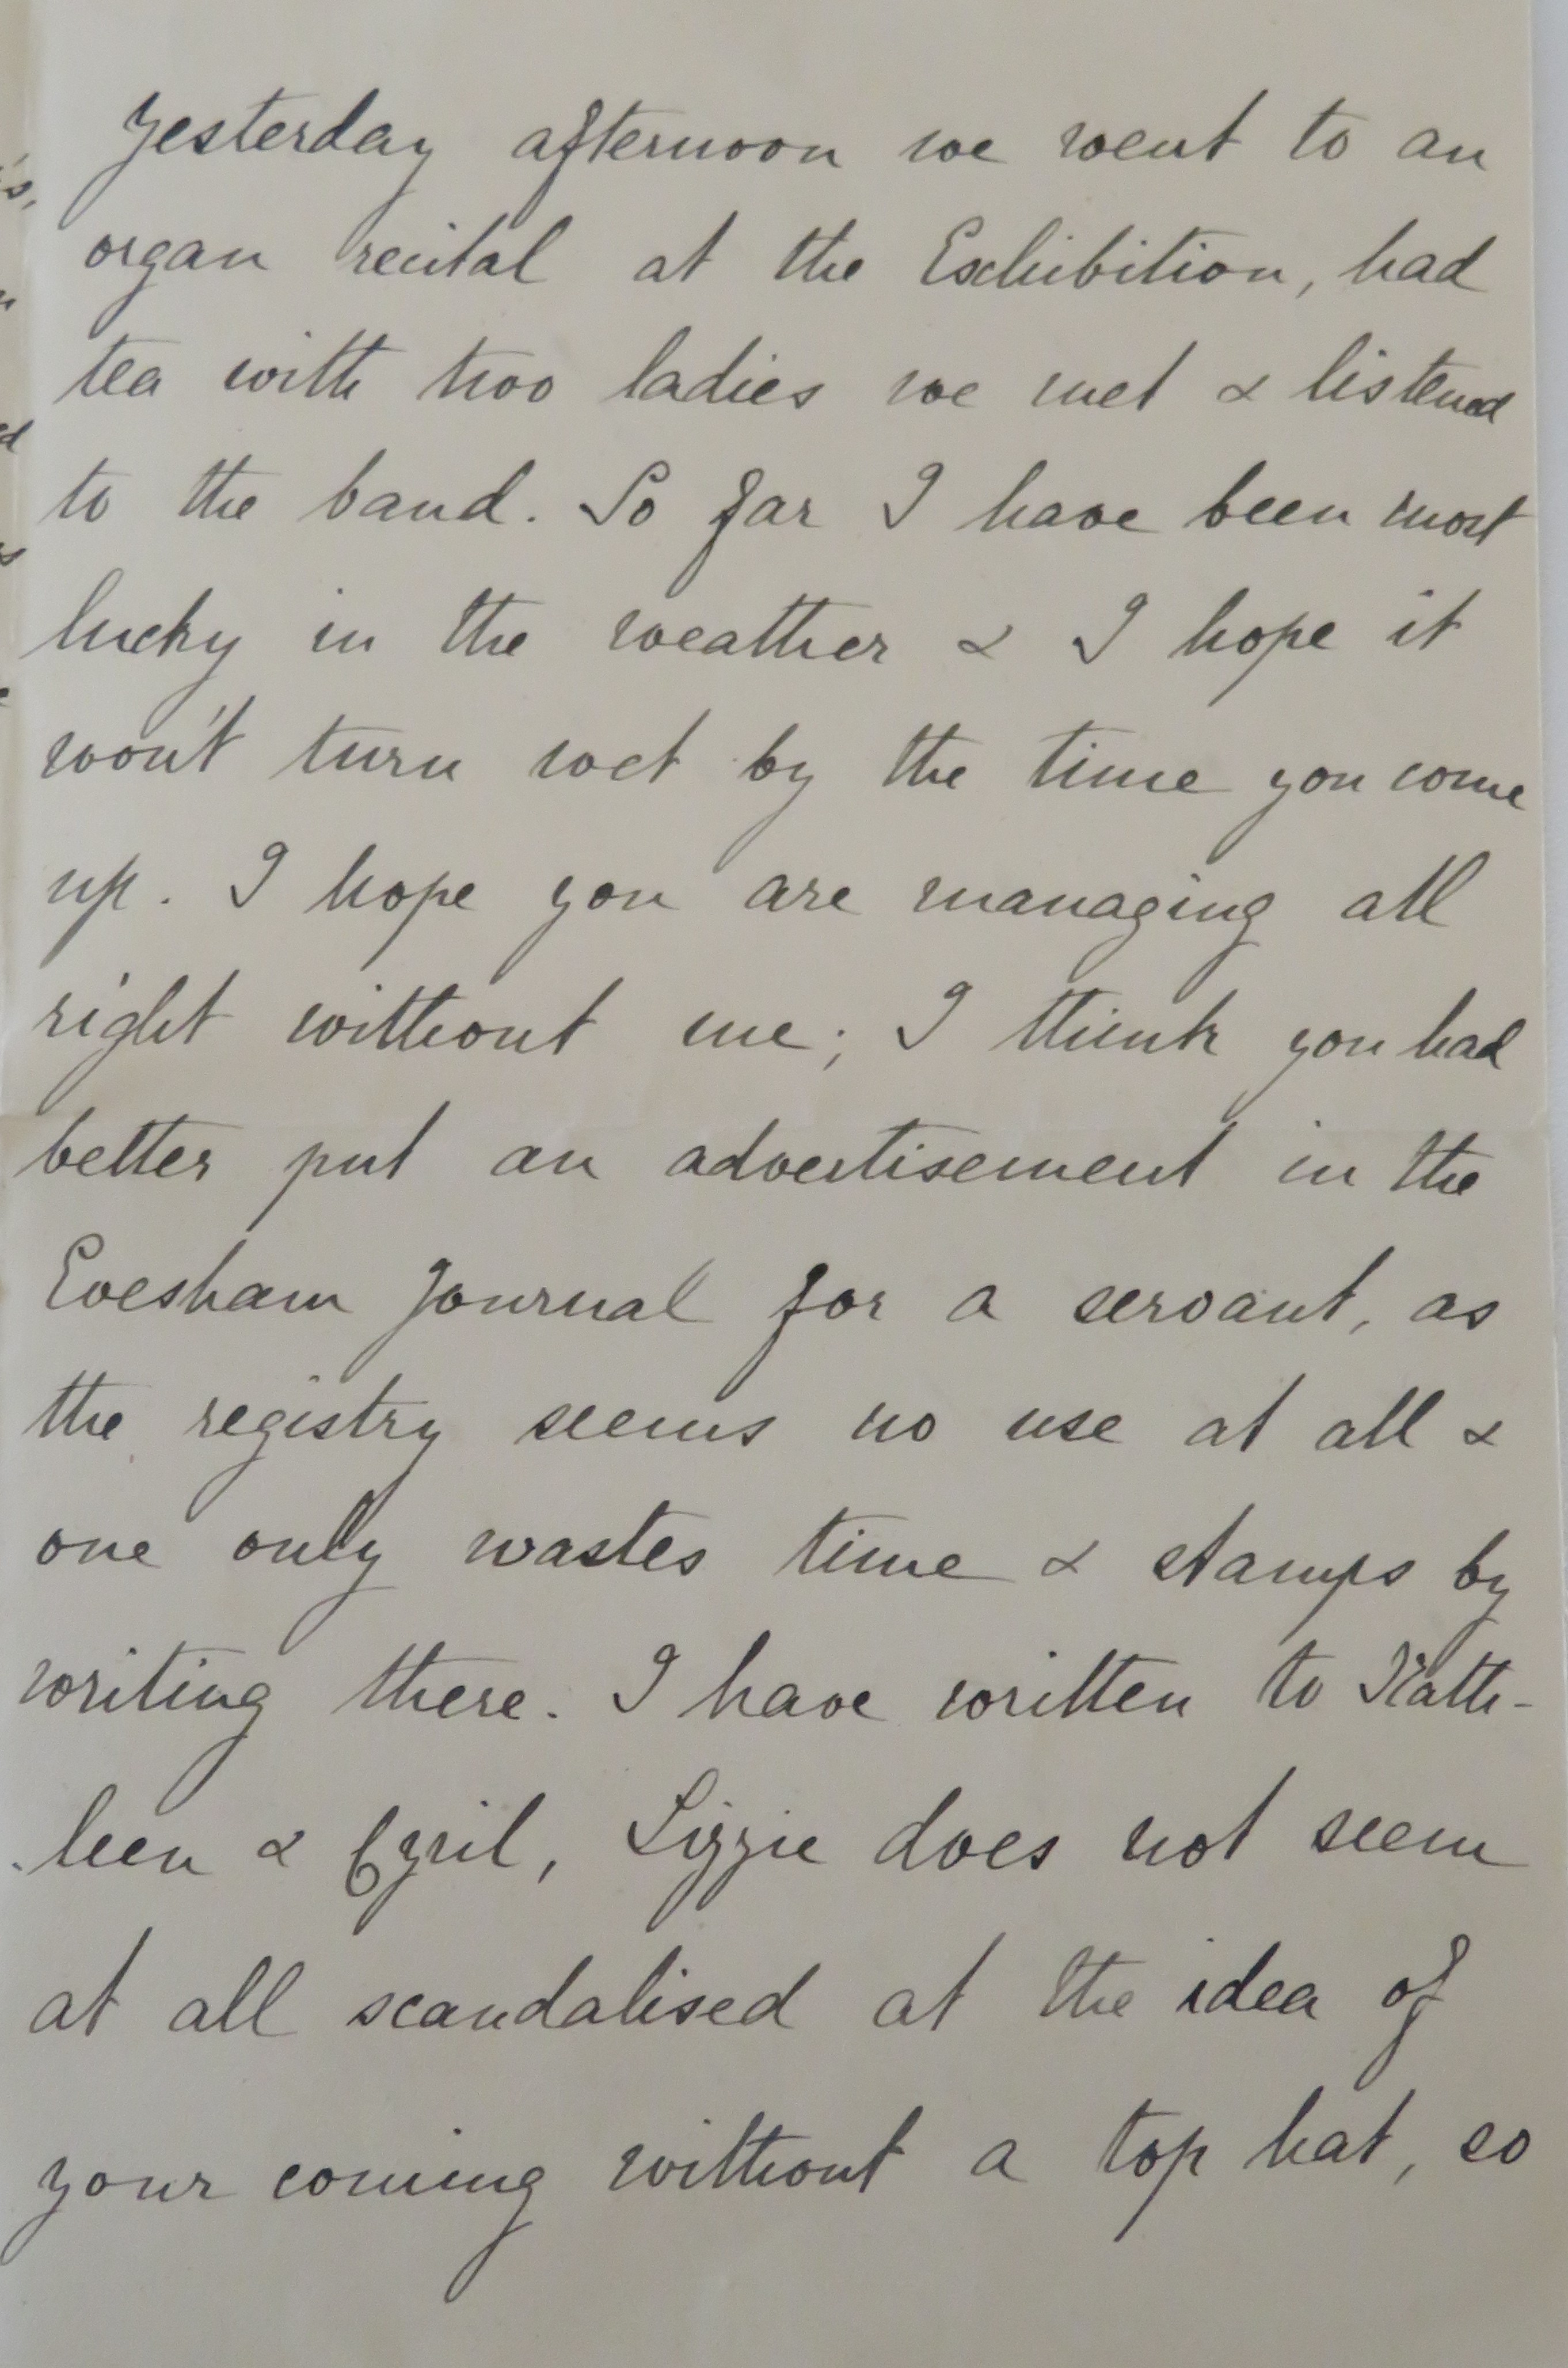 Yesterday afternoon we went to an
organ recital at the Exhibition, had
tea with two ladies we met & listened
to the band. So far I have been most
lucky in the weather & I hope it
won't turn wet by the time you come
up. I hope you are managing all
right without me; I think you had
better put an advertisement in the
Evesham Journal for a servant, as
the registry seems no use at all &
one only wastes time & stamps by
writing there. I have written to Kath-
leen & Cyril, Lizzie does not seem
at all scandalised at the idea of
your coming without a top hat, so